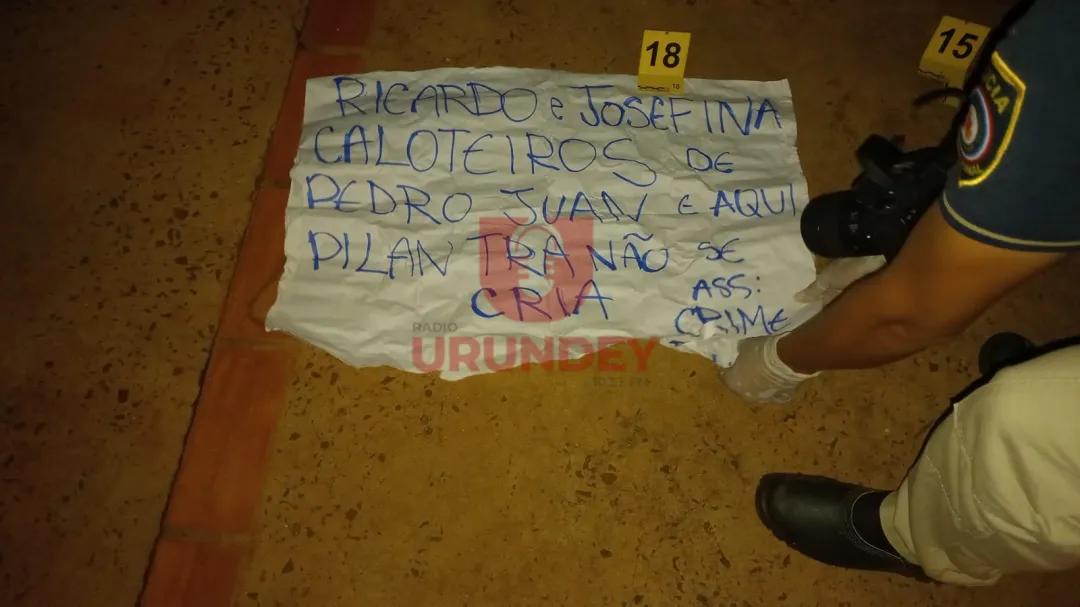 18
18
15
CIA
RICARDO e JOSEFINA
CALOTEIROS DE
PEDRO JUAN E AQUI
PILANTRA NÃO SE
CRIA
ASS:
CRIME
RADIO
URUNDEY